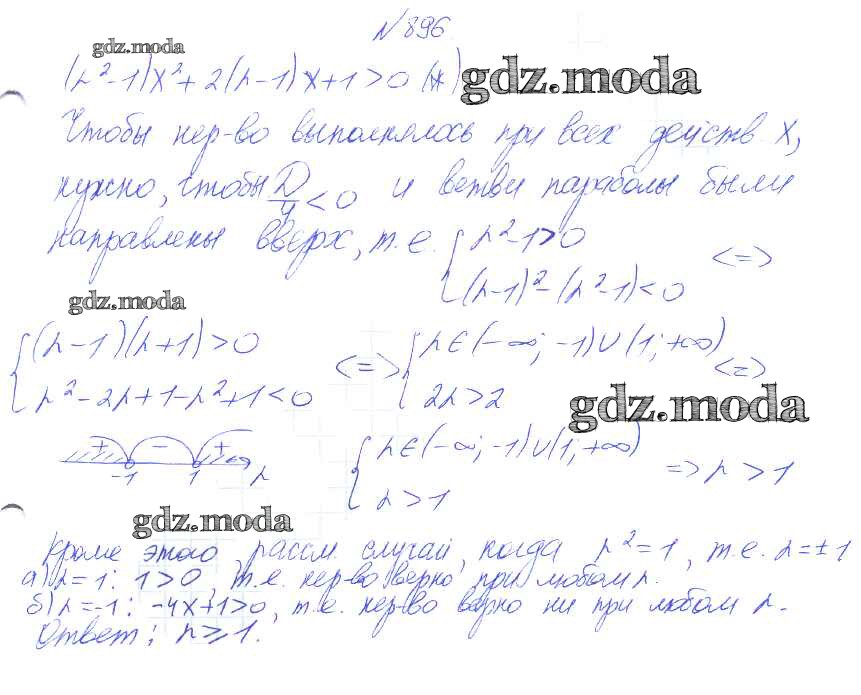 № 896.
gdz.moda
(r²-1)x²+2(r-1)x+1>0 (*)
gdz.moda
Чтобы нер-во выполнялось при всех действ x,
нужно, чтобы D/4<0 и ветви параболы были
направлены вверх, т.е. { r²-1>0
(r-1)²-(r²-1)<0 <=>
gdz.moda
{ (r-1)(r+1)>0
r²-2r+1-r²+1<0 <=>
{ r∈(-∞; -1)∪(1; +∞)
2r>2 <=>
gdz.moda
+ - +
-1 1 r
{ r∈(-∞; -1)∪(1; +∞)
r>1 => r>1
gdz.moda
Кроме этого, рассм. случай, когда r²=1, т.е. r=±1
а) r=1: 1>0, т.е. нер-во верно при любом r.
б) r=-1: -4x+1>0, т.е. нер-во верно ни при любом r.
Ответ: r⩾1.